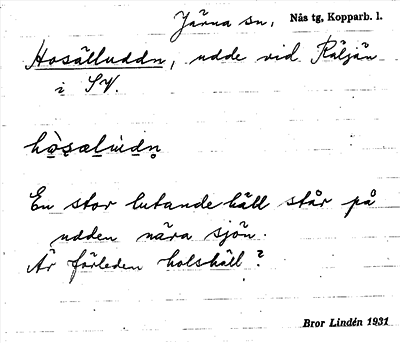 Järna sn, Nås tg, Kopparb. l.
Hosälluddn, udde vid Räljän
i SV.
En stor lutande häll står på
udden nära sjön.
Är förleden holshäll?
Bror Lindén 1931